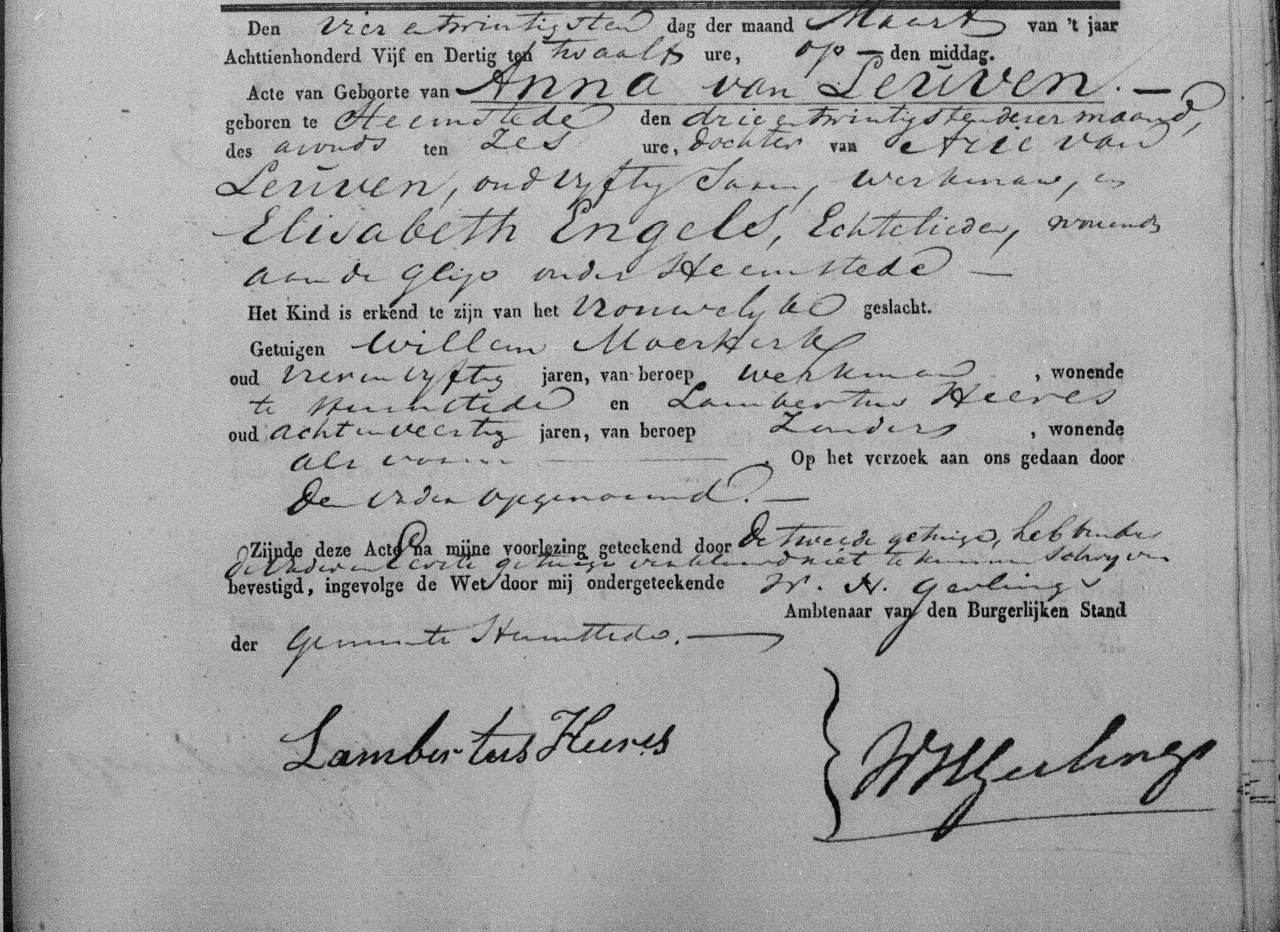 Den vier en twintigsten dag der maand Maart van 't jaar
Achttienhonderd Vijf en Dertig ten twaalf ure, op — den middag.
Acte van Geboorte van Anna van Leuven. —
geboren te Heemstede den drie en twintigsten dezer maand,
des avonds ten Zes ure, dochter van Arie van
Leuven, oud vyftig Jaren, werkman, en
Elisabeth Engels, Echtelieden, wonende
aan de Glip onder Heemstede —
Het Kind is erkend te zijn van het vrouwelyke geslacht.
Getuigen Willem Moerkerk
oud vier en vyftig jaren, van beroep werkman, wonende
te Heemstede en Lambertus Heeres
oud acht en veertig jaren, van beroep Zanders, wonende
als voren — . Op het verzoek aan ons gedaan door
den vader opgenoemd. —
Zijnde deze Acte na mijne voorlezing geteekend door de tweede getuige, hebbende
de vader en Eerste getuige verklaard niet te kunnen schryven
bevestigd, ingevolge de Wet door mij ondergeteekende W. H. Gerlings
Ambtenaar van den Burgerlijken Stand
der Gemeente Heemstede. —
Lambertus Heeres
WHGerlings